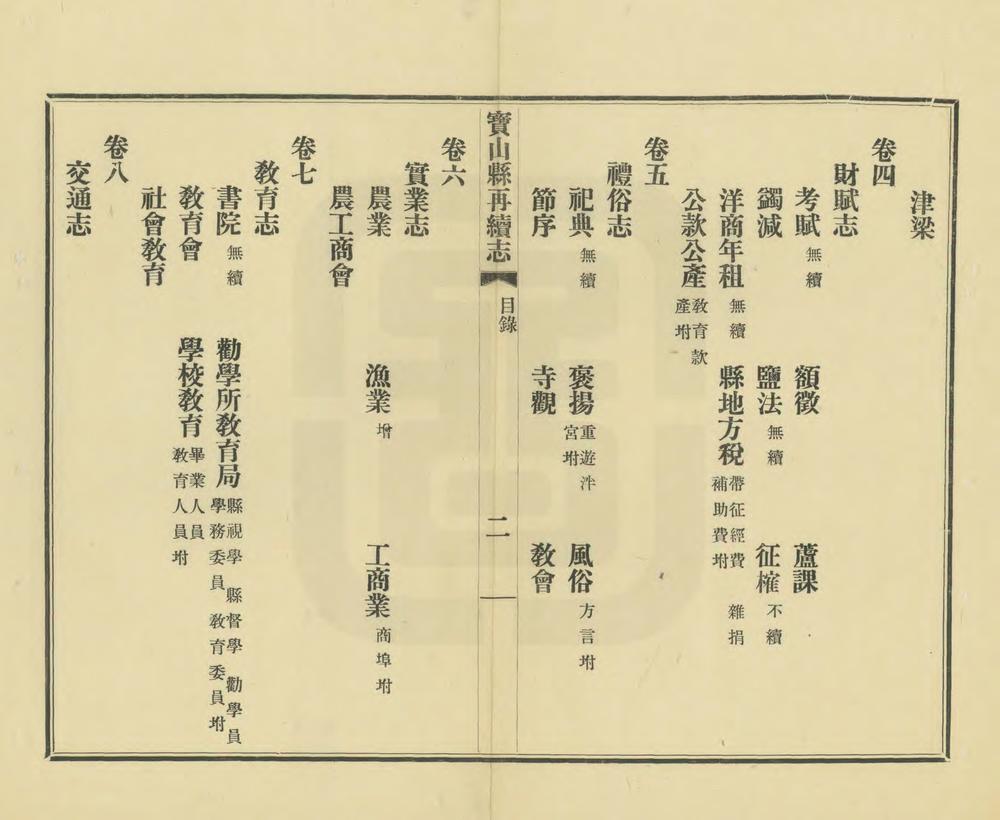 津梁
卷四
財賦志
考賦 無續 額徵 蘆課
蠲減 鹽法 無續 征榷 不續
洋商年租 無續 縣地方稅 帶征經費 補助費坿 雜捐
公款公產 教育款產坿
卷五
禮俗志
祀典 無續 褒揚 重遊泮宮坿 風俗 方言坿
節序 寺觀 教會
寶山縣再續志 目錄 二
卷六
實業志
農業 漁業 增 工商業 商埠坿
農工商會
卷七
教育志
書院 無續 勸學所教育局 縣視學 縣督學 勸學員 學務委員 教育委員坿
教育會 學校教育 畢業人員 教育人員坿
社會教育
卷八
交通志